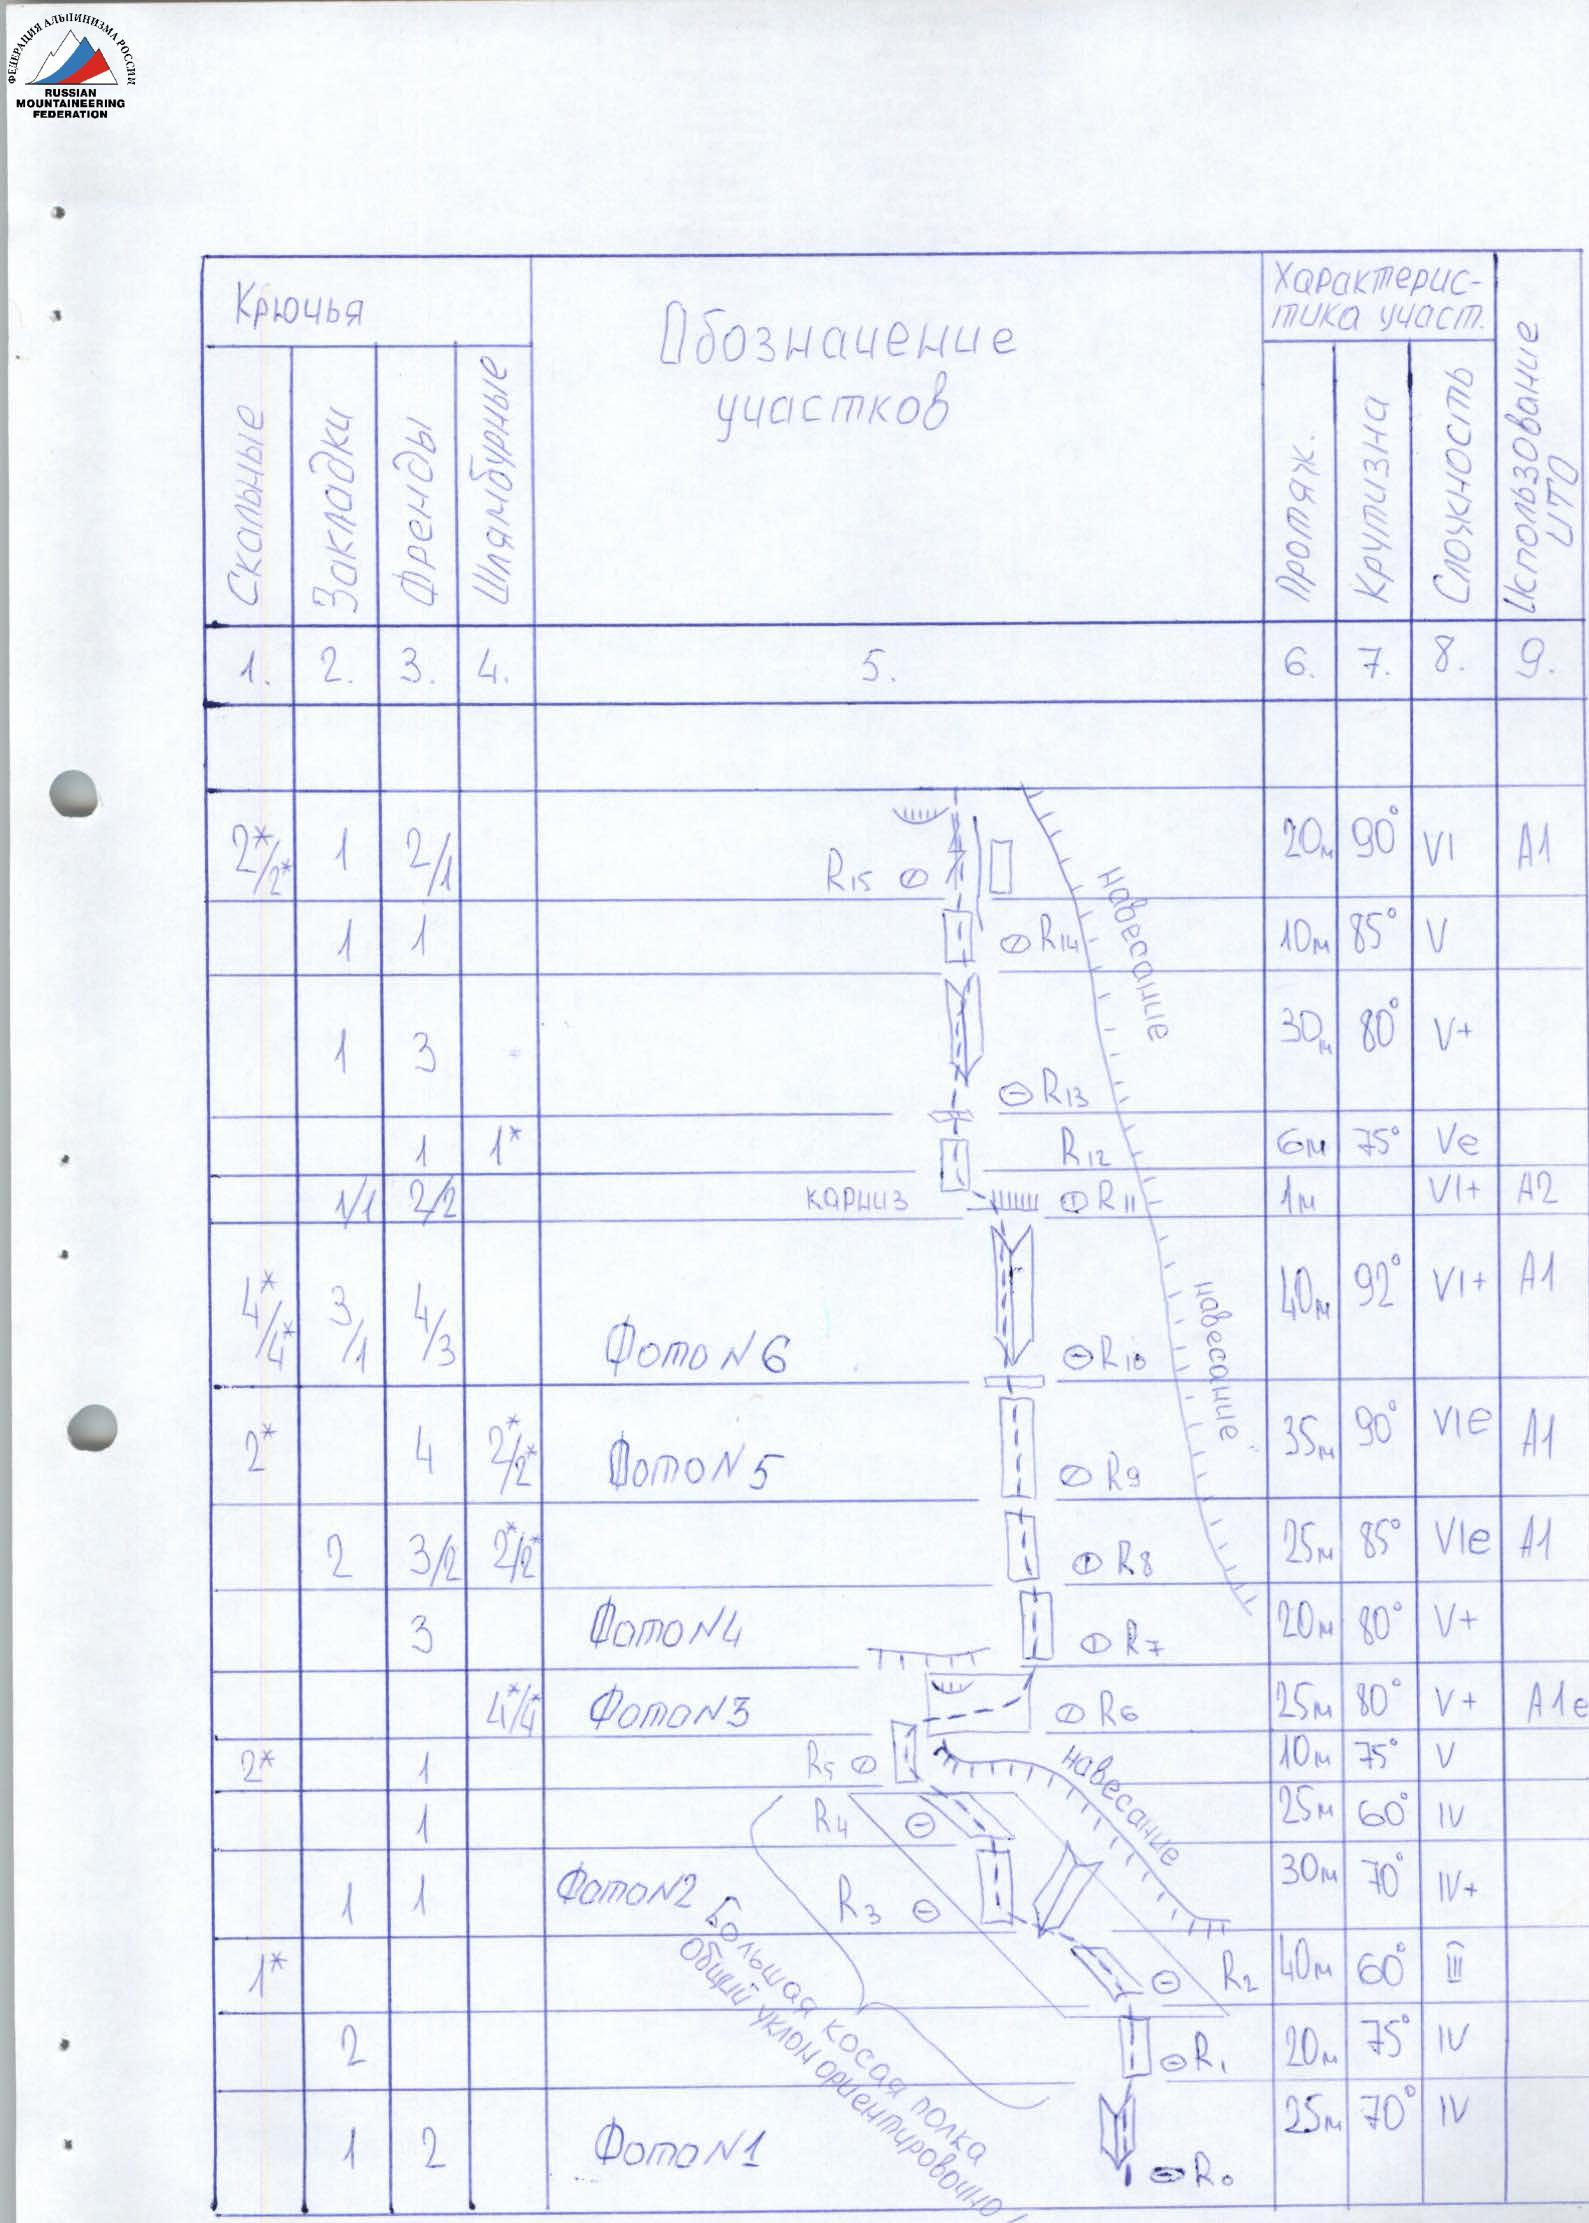 ФЕДЕРАЦИЯ АЛЬПИНИЗМА РОССИИ
RUSSIAN
MOUNTAINEERING
FEDERATION
Крючья
Обозначение
участков
Характерис-
тика участ.
Использование
ИТО
Скальные
Закладки
Френды
Шлямбурные
Протяж.
Крутизна
Сложность
1. 2. 3. 4. 5. 6. 7. 8. 9.
2*/2* 1 2/1 R15 20м 90° VI A1
навесание
1 1 R14 10м 85° V
1 3 R13 30м 80° V+
1 1* R12 6м 75° Ve
1/1 2/2 карниз R11 1м VI+ A2
4*/4* 3/1 4/3 Фото N6 R10 40м 92° VI+ A1
навесание
2* 4 2*/2* Фото N5 R9 35м 90° VIe A1
2 3/2 2*/2* R8 25м 85° VIe A1
3 Фото N4 R7 20м 80° V+
4*/4* Фото N3 R6 25м 80° V+ A1e
2* 1 R5 10м 75° V
навесание
1 R4 25м 60° IV
1 1 Фото N2 R3 30м 70° IV+
1* R2 40м 60° III
Большая косая полка
Общий уклон ориентировочно
2 R1 20м 75° IV
1 2 Фото N1 R0 25м 70° IV